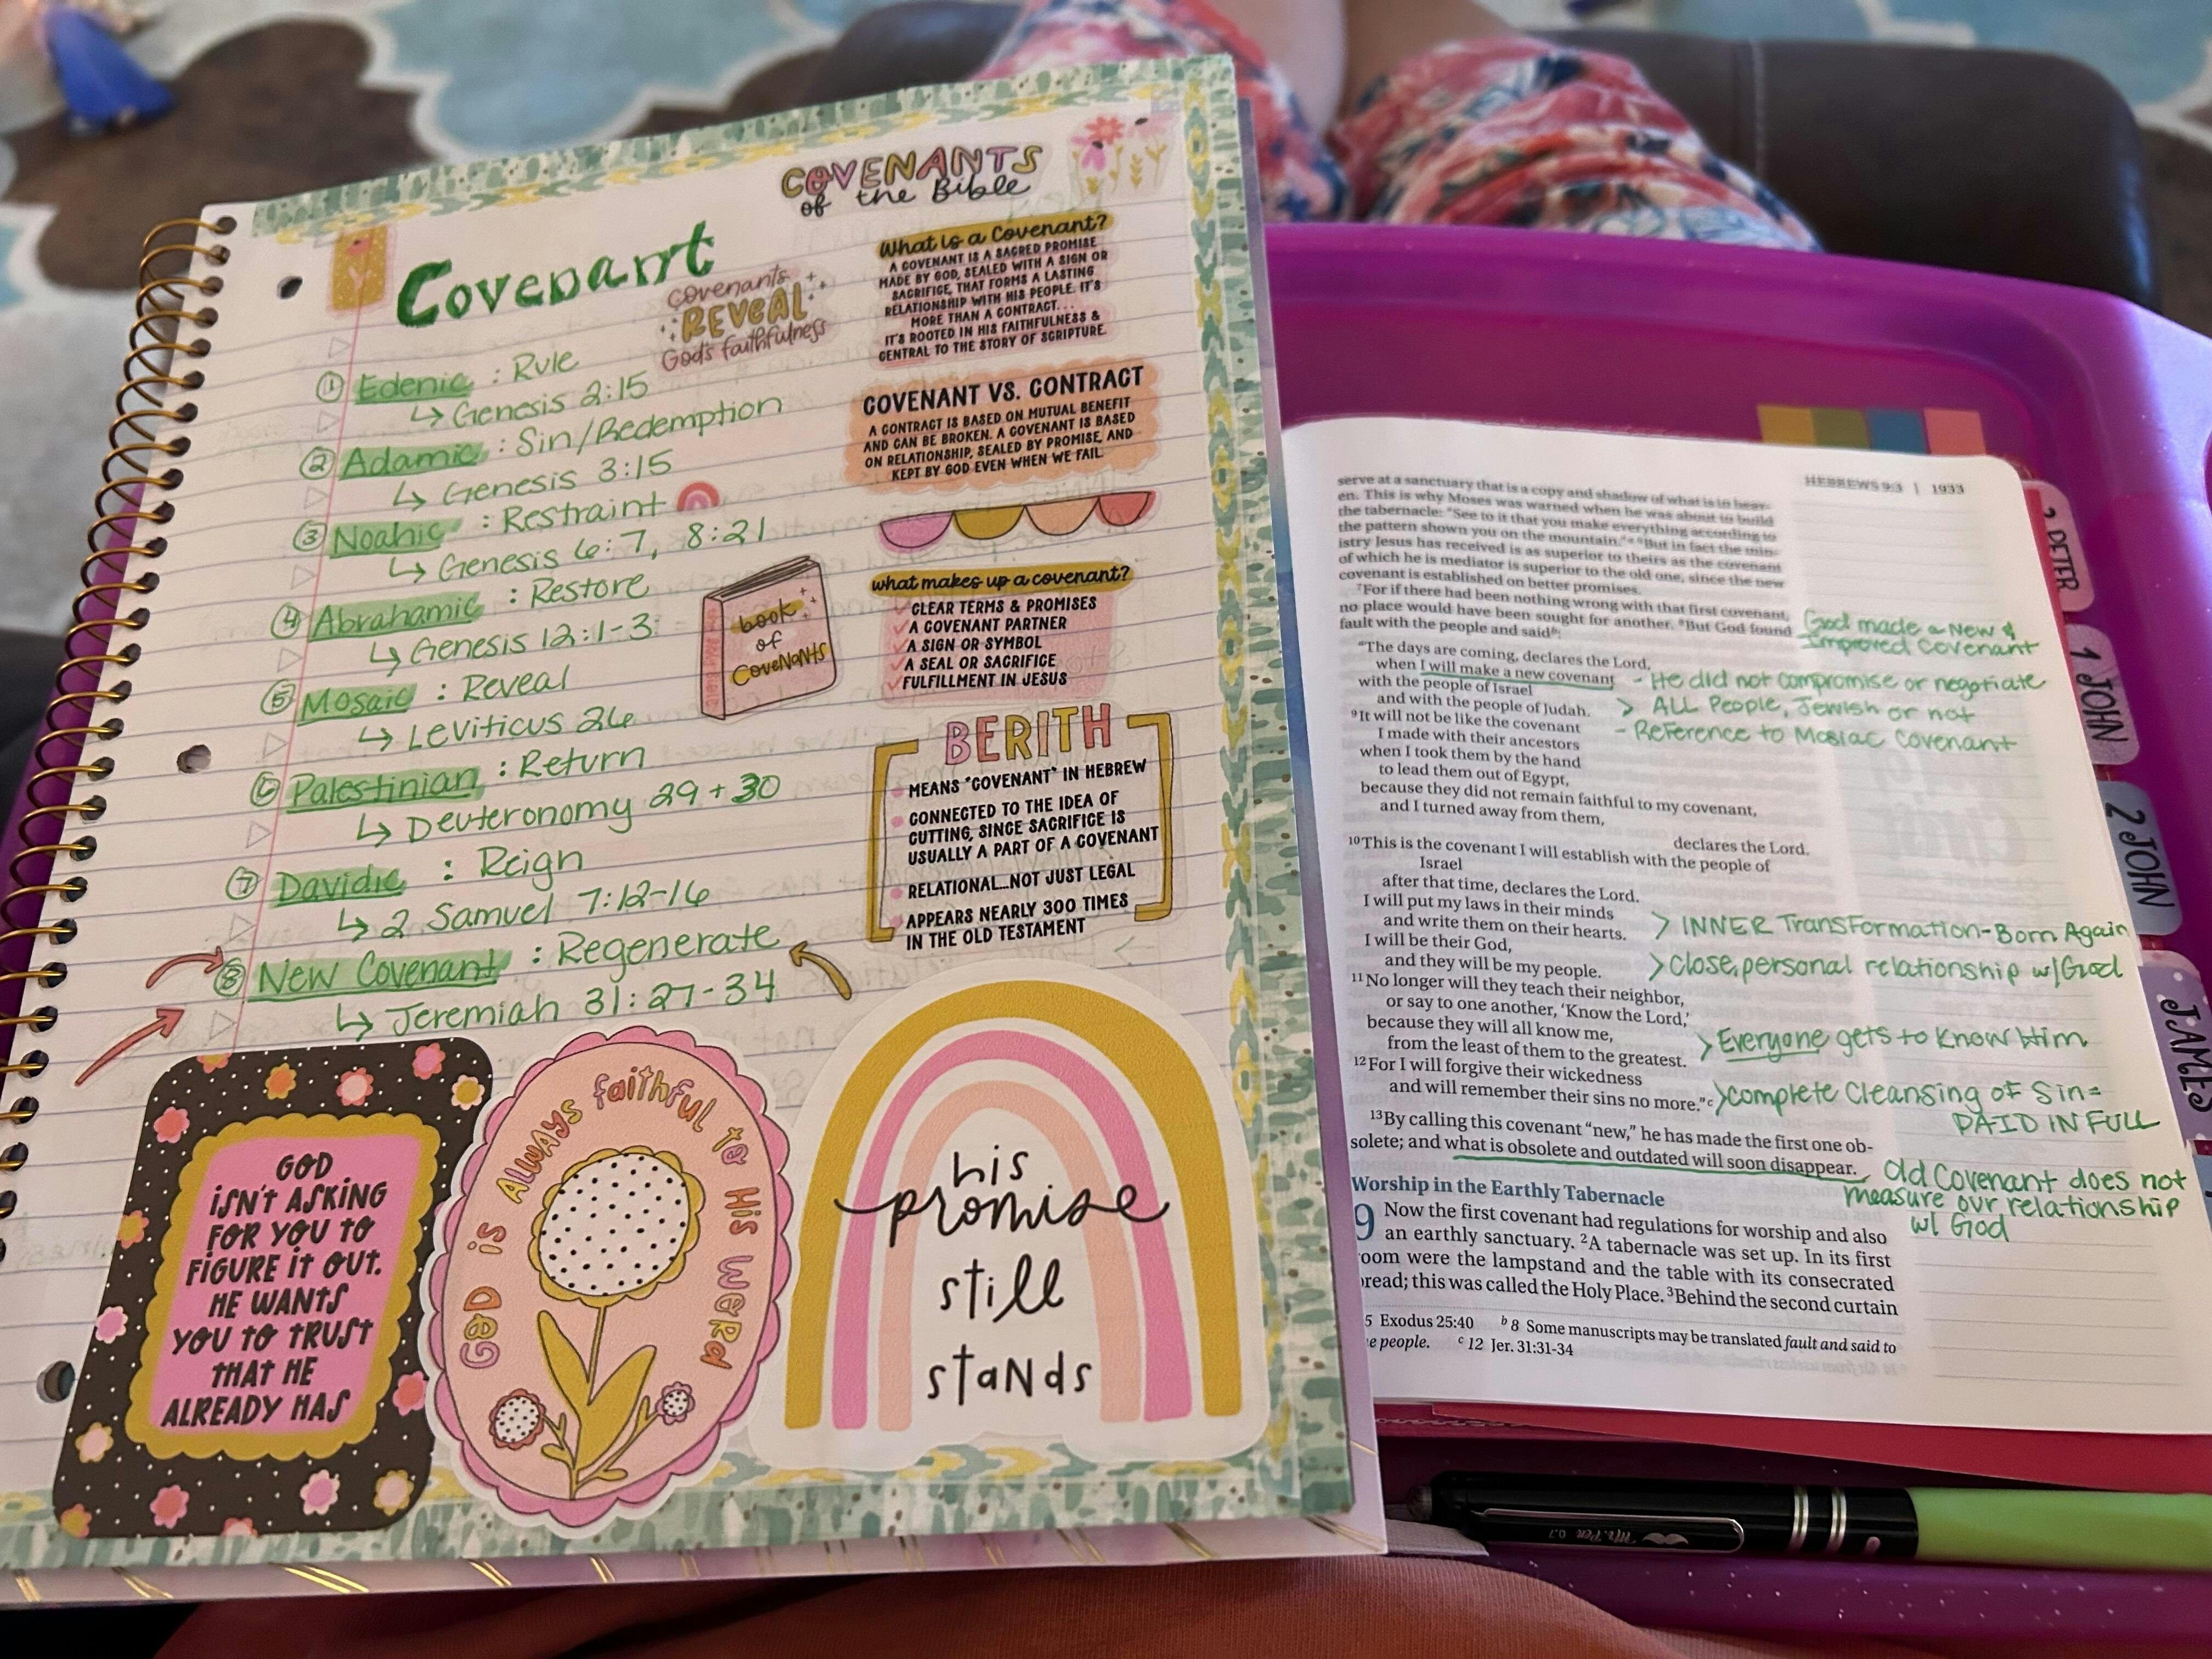 COVENANTS
of the Bible
Covenant
covenants
REVEAL
God's faithfulness
① Edenic : Rule
↳ Genesis 2:15
② Adamic : Sin/Redemption
↳ Genesis 3:15
③ Noahic : Restraint
↳ Genesis 6:7, 8:21
④ Abrahamic : Restore
↳ Genesis 12:1-3
⑤ Mosaic : Reveal
↳ Leviticus 26
⑥ Palestinian : Return
↳ Deuteronomy 29 + 30
⑦ Davidic : Reign
↳ 2 Samuel 7:12-16
⑧ New Covenant : Regenerate
↳ Jeremiah 31:27-34
What is a Covenant?
A COVENANT IS A SACRED PROMISE
MADE BY GOD, SEALED WITH A SIGN OR
SACRIFICE, THAT FORMS A LASTING
RELATIONSHIP WITH HIS PEOPLE. IT'S
MORE THAN A CONTRACT...
IT'S ROOTED IN HIS FAITHFULNESS &
CENTRAL TO THE STORY OF SCRIPTURE.
COVENANT VS. CONTRACT
A CONTRACT IS BASED ON MUTUAL BENEFIT
AND CAN BE BROKEN. A COVENANT IS BASED
ON RELATIONSHIP, SEALED BY PROMISE, AND
KEPT BY GOD EVEN WHEN WE FAIL.
book
of
COVENANTS
what makes up a covenant?
CLEAR TERMS & PROMISES
A COVENANT PARTNER
A SIGN OR SYMBOL
A SEAL OR SACRIFICE
FULFILLMENT IN JESUS
BERITH
MEANS "COVENANT" IN HEBREW
CONNECTED TO THE IDEA OF
CUTTING, SINCE SACRIFICE IS
USUALLY A PART OF A COVENANT
RELATIONAL...NOT JUST LEGAL
APPEARS NEARLY 300 TIMES
IN THE OLD TESTAMENT
GOD
ISN'T ASKING
FOR YOU TO
FIGURE IT OUT.
HE WANTS
YOU TO TRUST
THAT HE
ALREADY HAS
GOD is ALWAYS faithful to HIS WORD
his
promise
still
stands
HEBREWS 9:3 | 1933
serve at a sanctuary that is a copy and shadow of what is in heav-
en. This is why Moses was warned when he was about to build
the tabernacle: "See to it that you make everything according to
the pattern shown you on the mountain."a 6But in fact the min-
istry Jesus has received is as superior to theirs as the covenant
of which he is mediator is superior to the old one, since the new
covenant is established on better promises.
7For if there had been nothing wrong with that first covenant,
no place would have been sought for another. 8But God found
fault with the people and saidb:
"The days are coming, declares the Lord,
when I will make a new covenant
with the people of Israel
and with the people of Judah.
9It will not be like the covenant
I made with their ancestors
when I took them by the hand
to lead them out of Egypt,
because they did not remain faithful to my covenant,
and I turned away from them,
declares the Lord.
10This is the covenant I will establish with the people of
Israel
after that time, declares the Lord.
I will put my laws in their minds
and write them on their hearts.
I will be their God,
and they will be my people.
11No longer will they teach their neighbor,
or say to one another, 'Know the Lord,'
because they will all know me,
from the least of them to the greatest.
12For I will forgive their wickedness
and will remember their sins no more."c
13By calling this covenant "new," he has made the first one ob-
solete; and what is obsolete and outdated will soon disappear.
Worship in the Earthly Tabernacle
9 Now the first covenant had regulations for worship and also
an earthly sanctuary. 2A tabernacle was set up. In its first
room were the lampstand and the table with its consecrated
bread; this was called the Holy Place. 3Behind the second curtain
5 Exodus 25:40 b 8 Some manuscripts may be translated fault and said to
e people. c 12 Jer. 31:31-34
God made a New &
Improved Covenant
- He did not compromise or negotiate
> ALL People, Jewish or not
- Reference to Mosiac Covenant
> INNER Transformation-Born Again
> Close, personal relationship w/God
> Everyone gets to know Him
> complete Cleansing of Sin=
PAID IN FULL
Old Covenant does not
measure our relationship
w/ God
2 PETER
1 JOHN
2 JOHN
JAMES
Mr. Pen 0.7